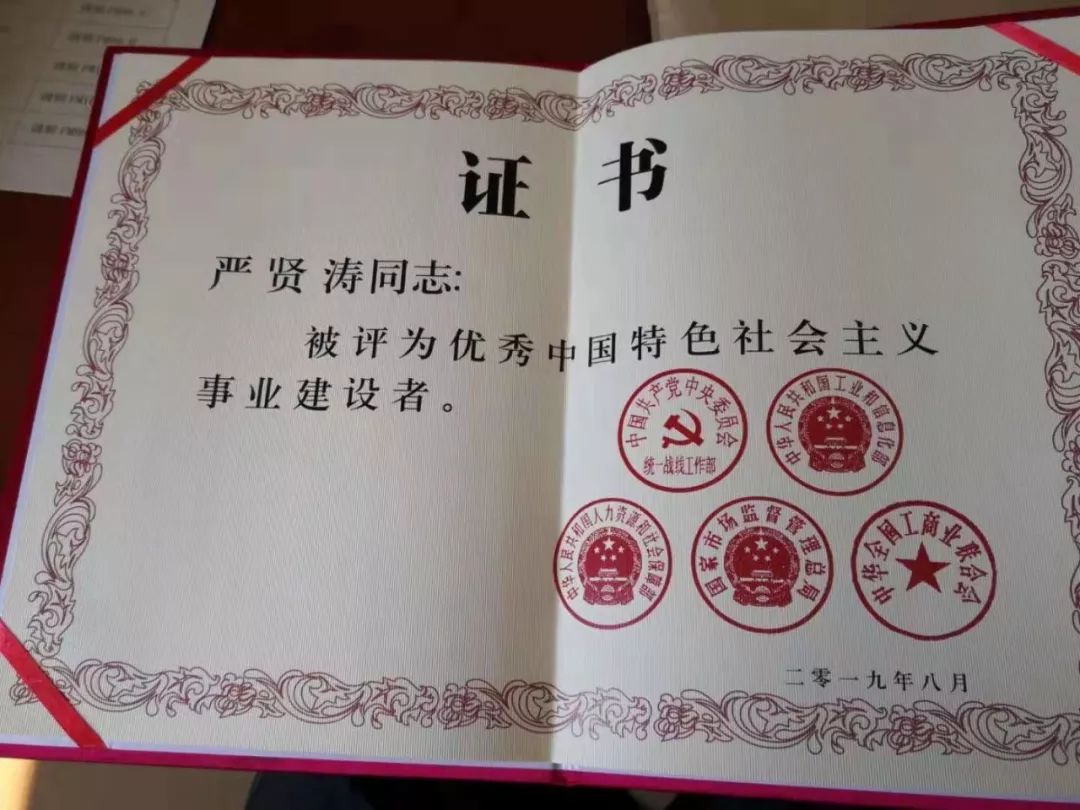 证书
严贤涛同志:
被评为优秀中国特色社会主义
事业建设者。
中国共产党中央委员会
统一战线工作部
中华人民共和国工业和信息化部
中华人民共和国人力资源和社会保障部
国家市场监督管理总局
中华全国工商业联合会
二零一九年八月